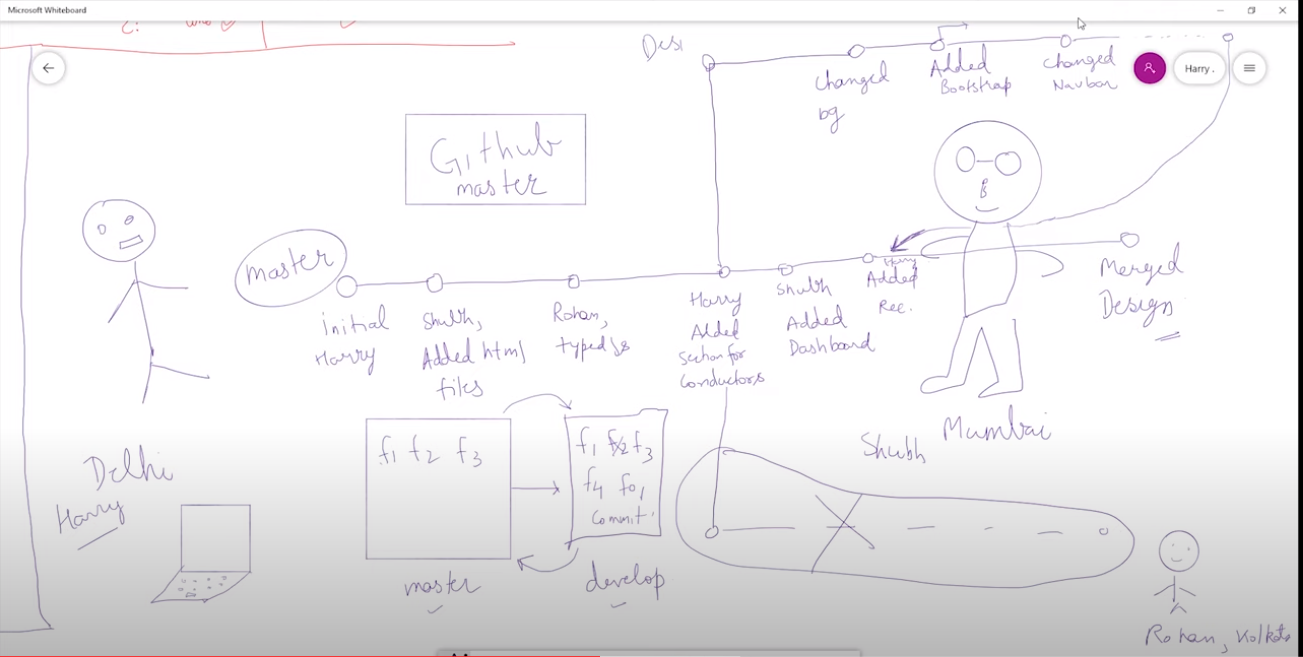 Microsoft Whiteboard
Desi
Changed
bg
Added
Bootstrap
Changed
Navbar
Harry .
Github
master
master
initial
Harry
Shubh,
Added html
files
Rohan,
typedjs
Harry
Added
Section for
Conductors
Shubh
Added
Dashboard
Harry
Added
Rec.
Merged
Design
Mumbai
Shubh
Delhi
Harry
f1 f2 f3
master
f1 f2 f3
f4 f01
Commit
develop
Rohan, Kolkata